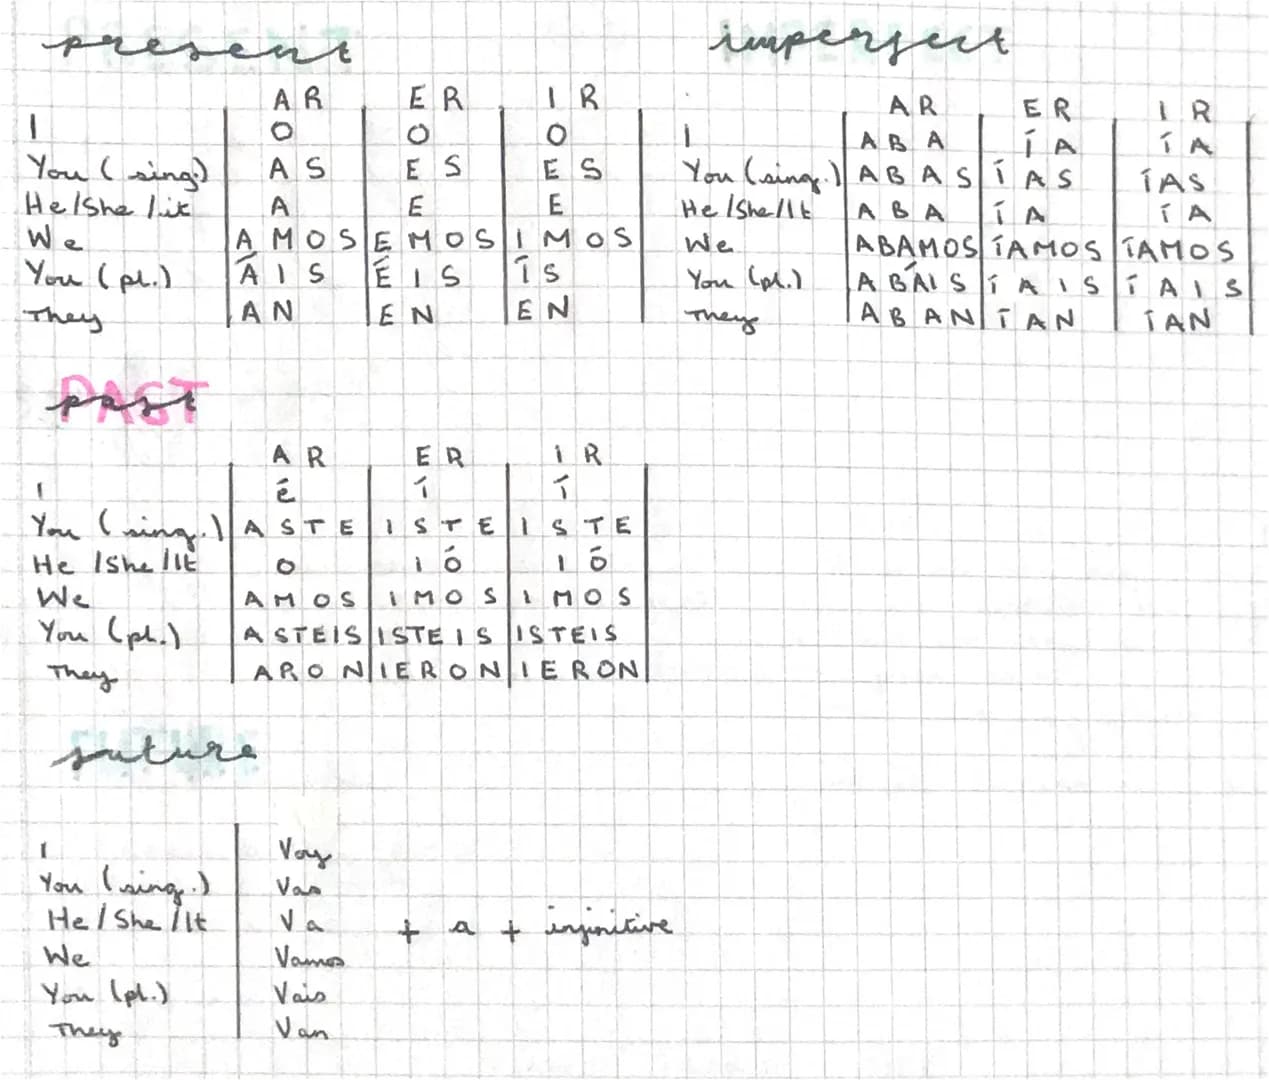 present
AR ER IR
I O O O
You (sing.) AS ES ES
He/She/it A E E
We AMOS EMOS IMOS
You (pl.) ÁIS ÉIS ÍS
They AN EN EN
imperfect
AR ER IR
I ABA ÍA ÍA
You (sing.) ABAS ÍAS ÍAS
He/She/It ABA ÍA ÍA
We ABAMOS ÍAMOS ÍAMOS
You (pl.) ABÁIS ÍAIS ÍAIS
They ABAN ÍAN ÍAN
PAST
past
AR ER IR
I é í í
You (sing.) ASTE ISTE ISTE
He/She/It O IÓ IÓ
We AMOS IMOS IMOS
You (pl.) ASTEIS ISTEIS ISTEIS
They ARON IERON IERON
future
I Voy
You (sing.) Vas
He/She/It Va + a + infinitive
We Vamos
You (pl.) Vais
They Van